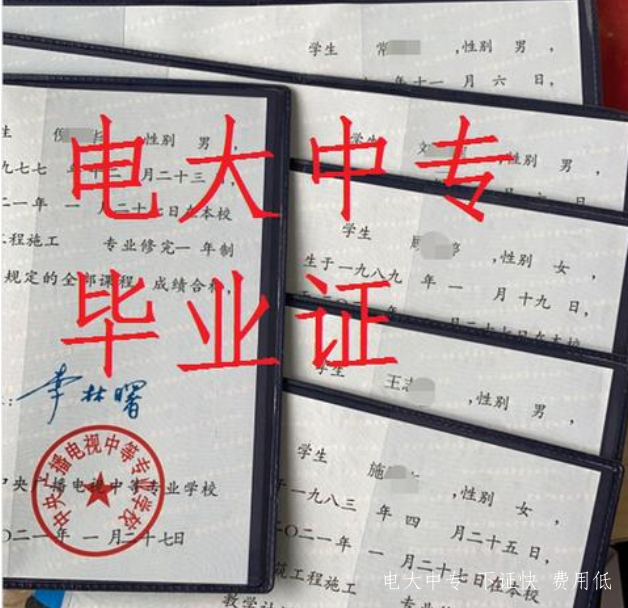 学生 常 ,性别 男 ,
年十一 月 六 日,
学生 ,性别 男 ,
学生 ,性别 女 ,
生于一九八九 年 一 月 十九 日,
月二十七日在本校
学生 王 ,性别 男 ,
学生 施 ,性别 女 ,
于一九八三 年 四 月 二十五 日,
二〇二一年 一 月二十七日在本校
筑工程施工
教学计
生 性别 男 ,
九七七 年十二月二十三 ,
二一年 一 月二十七日在本校
工程施工 专业修完一 年制
规定的全部课程,成绩合格,
李林曙
中央广播电视中等专业学校
中央广播电视中等专业学校
二〇二一年 一 月二十七日
电大中专
毕业证
电大中专 下证快 费用低